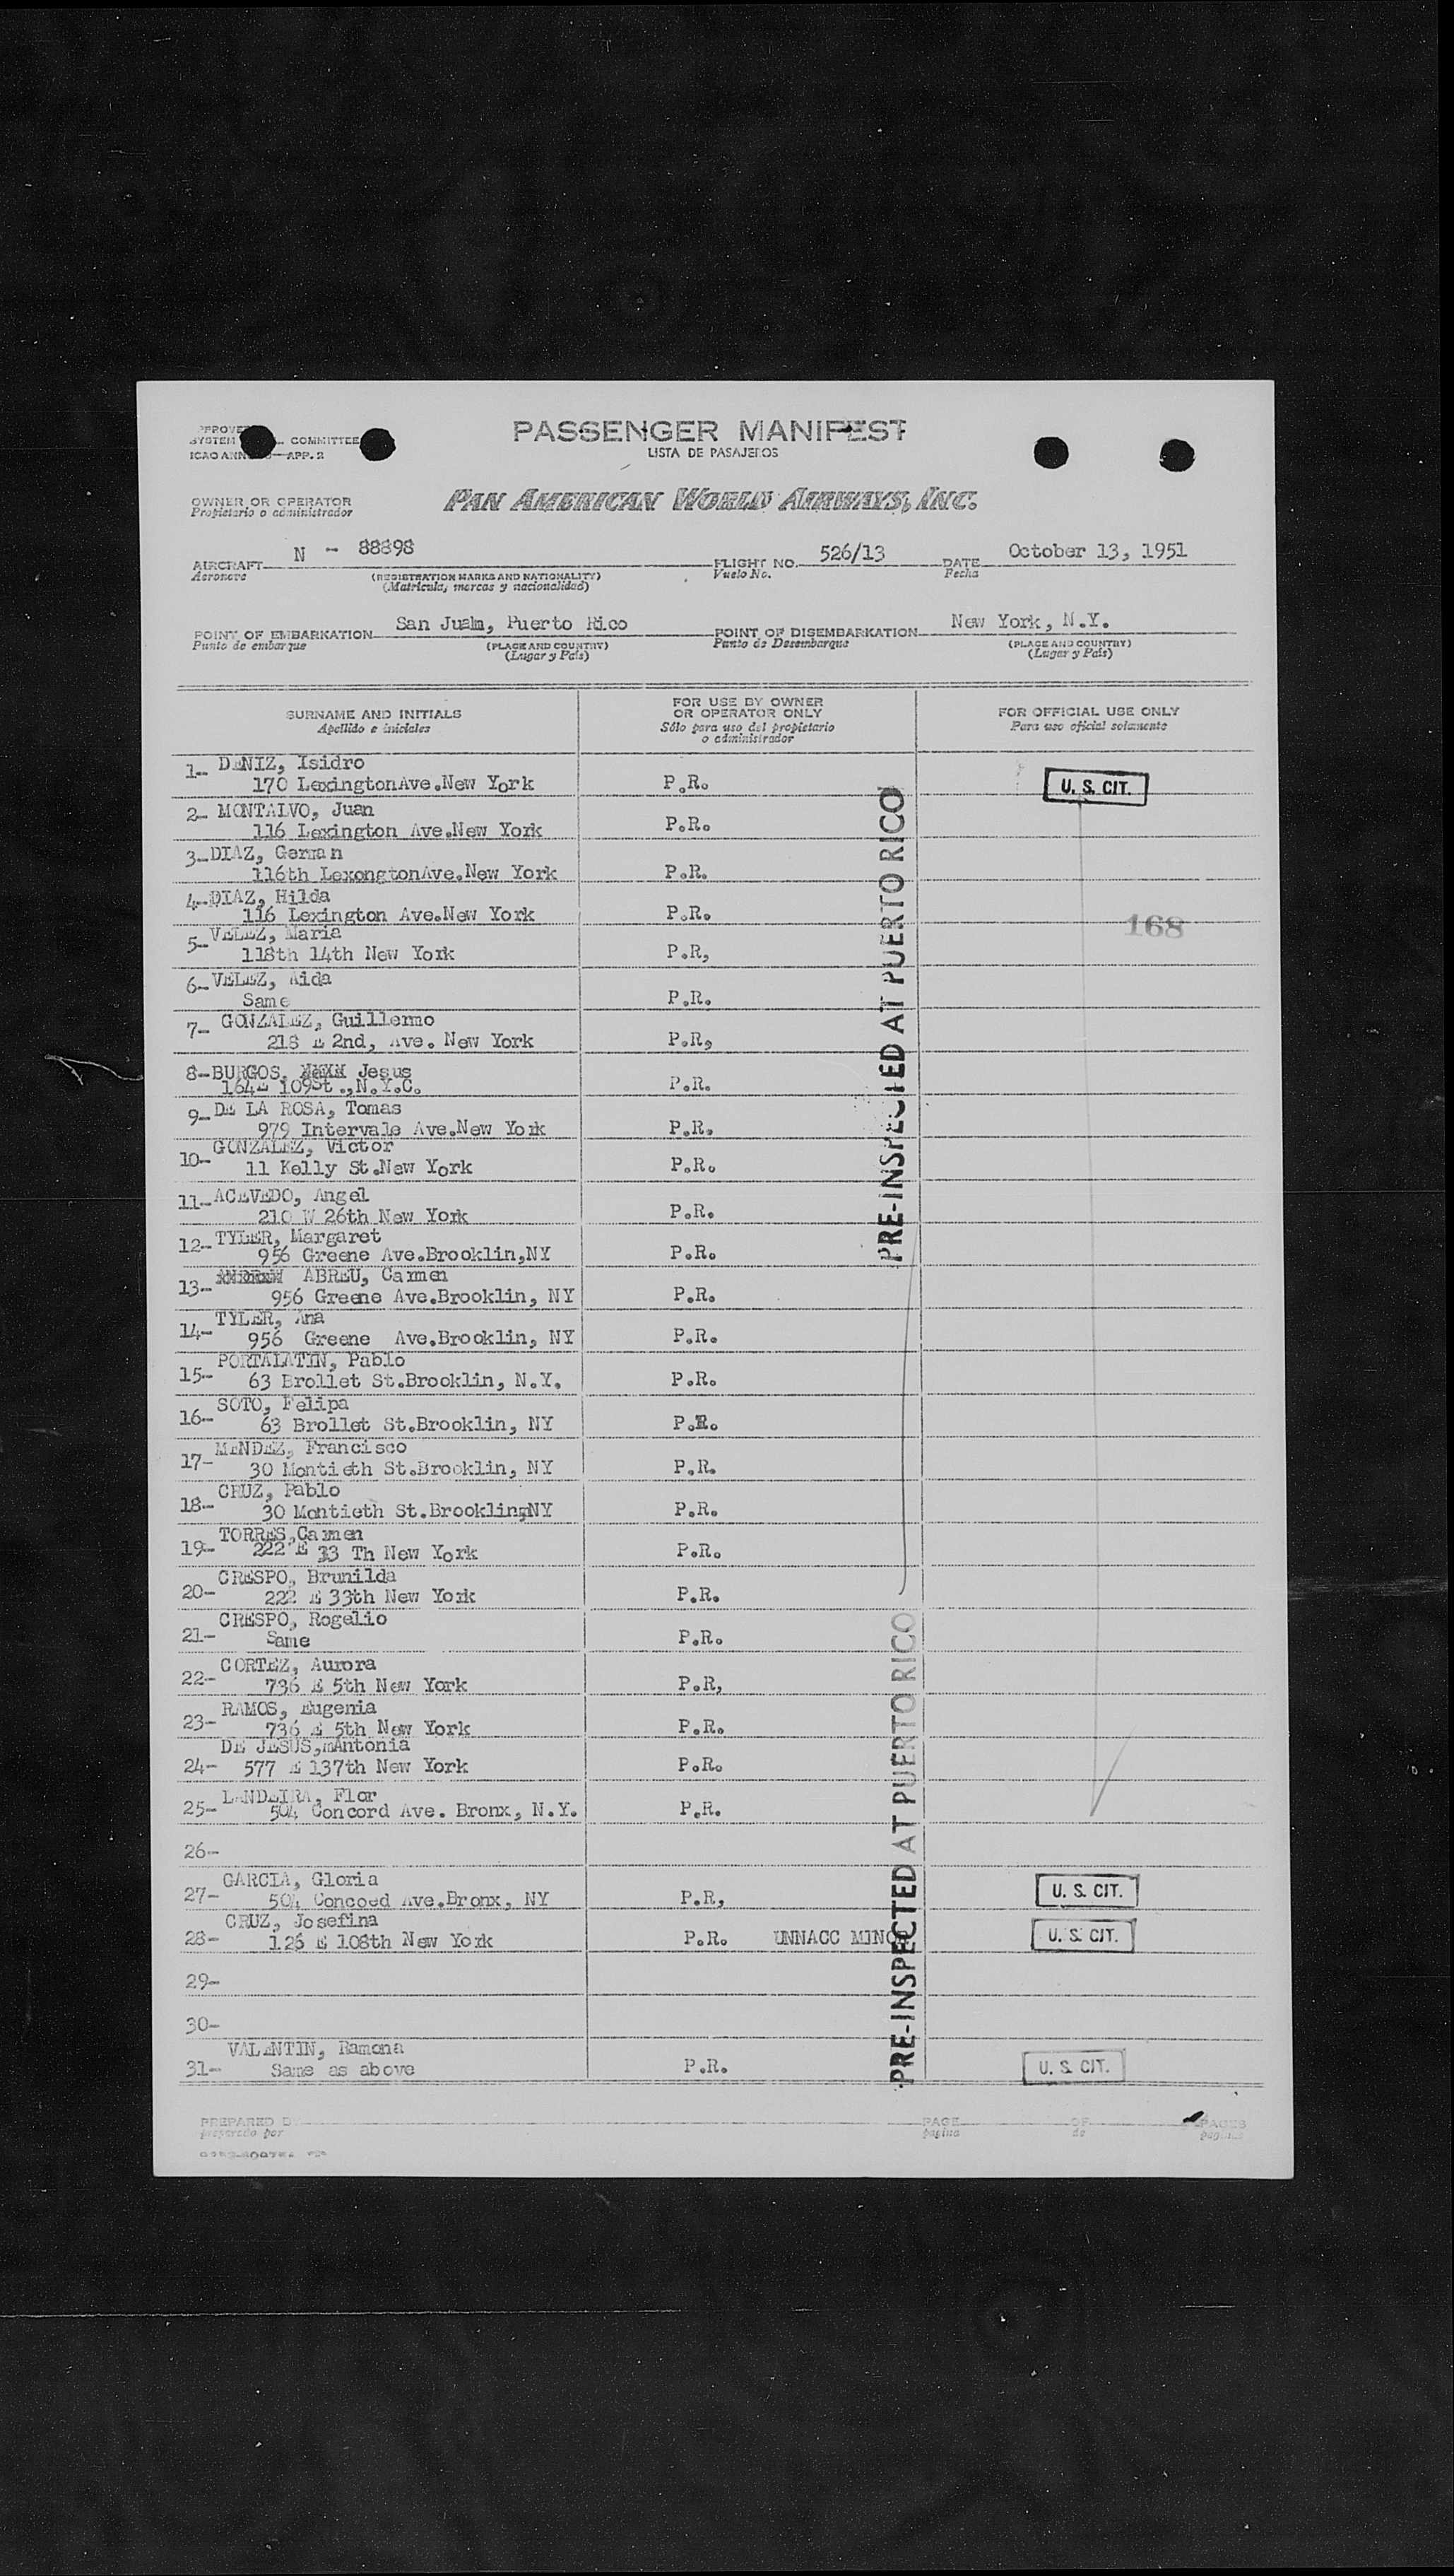 PASSENGER MANIFEST
LISTA DE PASAJEROS
SYSTEM COMMITTEE
ICAO APP. 2
OWNER OR OPERATOR
Propietario o administrador
PAN AMERICAN WORLD AIRWAYS, INC.
AIRCRAFT N - 88898
Aeronave
(REGISTRATION MARKS AND NATIONALITY)
(Matricula, marcas y nacionalidad)
FLIGHT NO. 526/13
Vuelo No.
DATE October 13, 1951
Fecha
POINT OF EMBARKATION San Juan, Puerto Rico
Punto de embarque
(PLACE AND COUNTRY)
(Lugar y País)
POINT OF DISEMBARKATION New York, N.Y.
Punto de Desembarque
(PLACE AND COUNTRY)
(Lugar y País)
SURNAME AND INITIALS
Apellido e iniciales
FOR USE BY OWNER
OR OPERATOR ONLY
Sólo para uso del propietario
o administrador
FOR OFFICIAL USE ONLY
Para uso oficial solamente
1- DENIZ, Isidro
170 LexingtonAve.New York P.R. U. S. CIT.
2- MONTALVO, Juan
116 Lexington Ave.New York P.R.
3- DIAZ, German
116th LexongtonAve.New York P.R.
4- DIAZ, Hilda
116 Lexington Ave.New York P.R.
168
5- VELEZ, Maria
118th 14th New York P.R,
6- VELEZ, Aida
Same P.R.
7- GONZALEZ, Guillermo
218 E 2nd, Ave. New York P.R,
8- BURGOS, Jesus
164E 109St.,N.Y.C. P.R.
9- DE LA ROSA, Tomas
979 Intervale Ave.New York P.R.
10- GONZALEZ, Victor
11 Kelly St.New York P.R.
11- ACEVEDO, Angel
210 W 26th New York P.R.
12- TYLER, Margaret
956 Greene Ave.Brooklin,NY P.R.
13- ABREU, Carmen
956 Greene Ave.Brooklin, NY P.R.
14- TYLER, Ana
956 Greene Ave.Brooklin, NY P.R.
15- PORTALATIN, Pablo
63 Brollet St.Brooklin, N.Y. P.R.
16- SOTO, Felipa
63 Brollet St.Brooklin, NY P.R.
17- MENDEZ, Francisco
30 Montieth St.Brooklin, NY P.R.
18- CRUZ, Pablo
30 Montieth St.Brooklin,NY P.R.
19- TORRES,Carmen
222 E 33 Th New York P.R.
20- CRESPO, Brunilda
222 E 33th New York P.R.
21- CRESPO, Rogelio
Same P.R.
22- CORTEZ, Aurora
736 E 5th New York P.R,
23- RAMOS, Eugenia
736 E 5th New York P.R.
24- DE JESUS, Antonia
577 E 137th New York P.R.
25- LANDEIRA, Flor
504 Concord Ave. Bronx, N.Y. P.R.
26-
27- GARCIA, Gloria
504 Concoed Ave.Bronx, NY P.R, U. S. CIT.
28- CRUZ, Josefina
126 E 108th New York P.R. UNNACC MINOR U. S. CIT.
29-
30-
31- VALENTIN, Ramona
Same as above P.R. U. S. CIT.
PRE-INSPECTED AT PUERTO RICO
PRE-INSPECTED AT PUERTO RICO
PREPARED
preparado por
PAGE OF PAGES
página de páginas